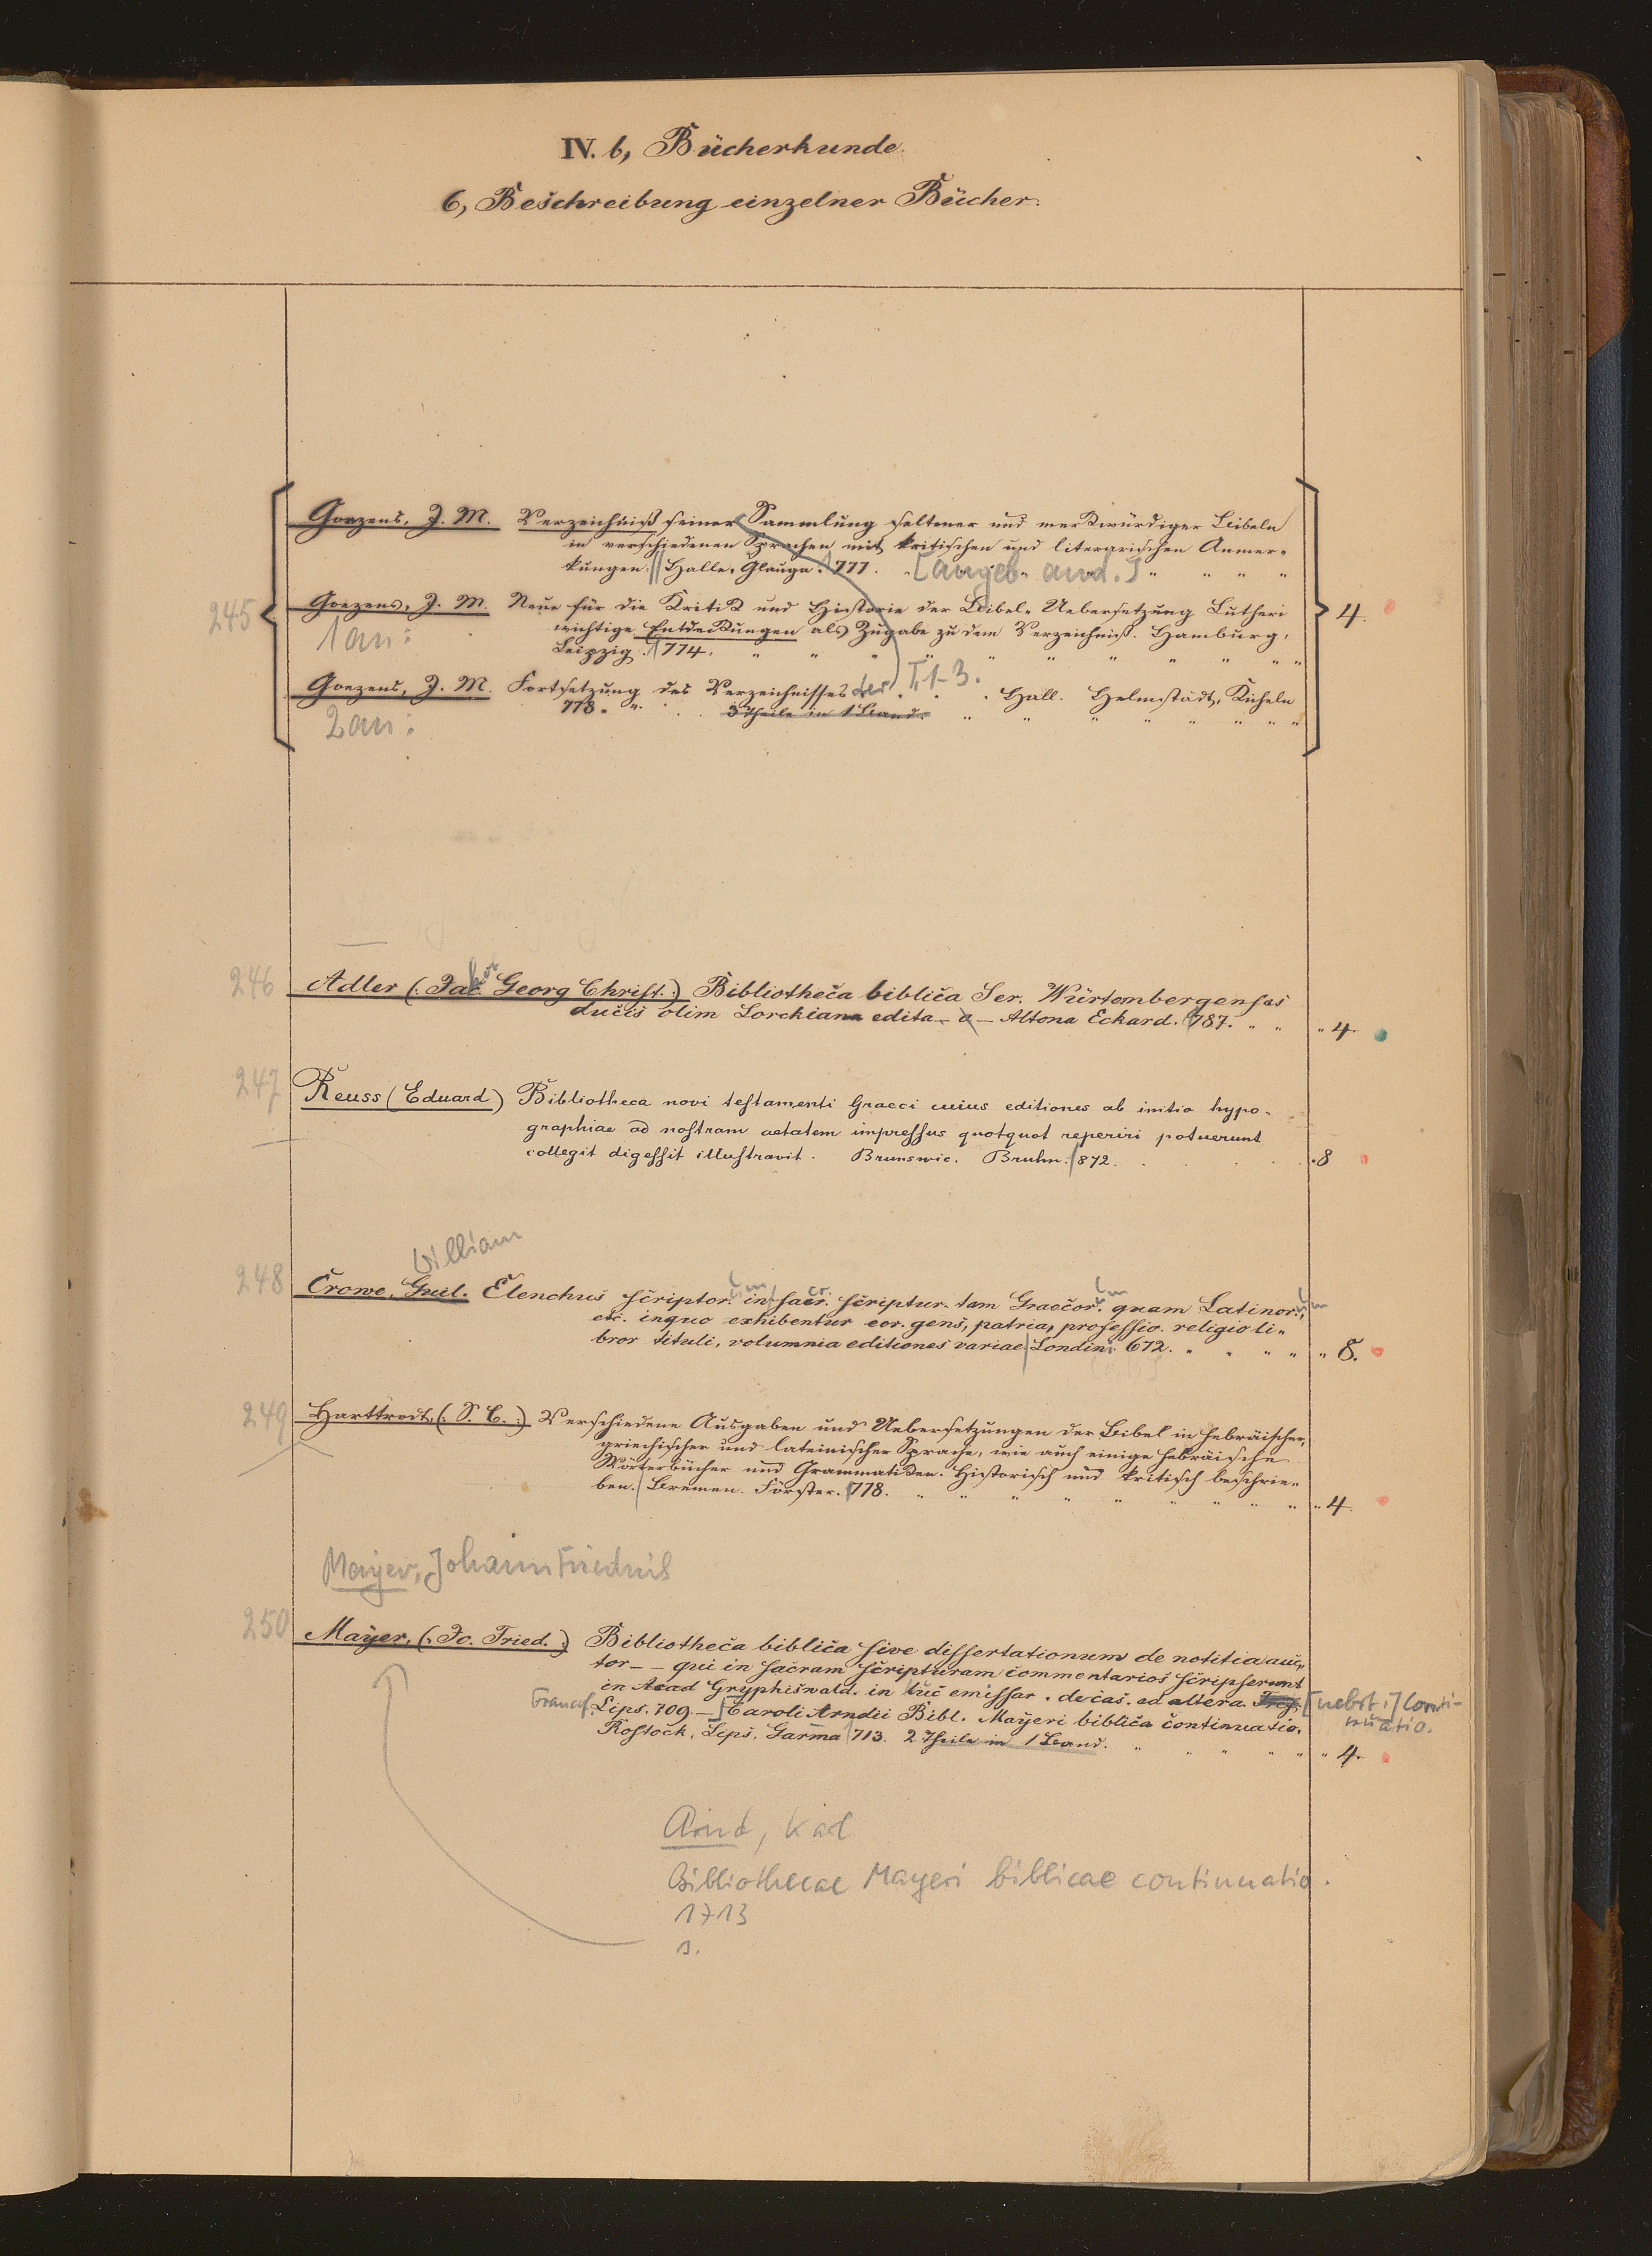 IV. b, Bücherkunde.
6, Beschreibung einzelner Bücher.
Goezens, J. M. Verzeichniß seiner Sammlung seltener und merkwürdiger Bibeln
in verschiedenen Sprachen mit kritischen und literarischen Anmer-
kungen. Halle, 777. [angeb. and.]
245 Goezens, J. M. Neue für die Kritik und Historie der Bibel-Uebersetzung Lutheri 4.
1 an: wichtige Entdeckungen als Zugabe zu dem Verzeichniß. Hamburg,
Leipzig. 774.
Goezens, J. M. Fortsetzung des Verzeichnisses der T. 1-3. Hall. Helmstädt,
2 an: 778. 3 Theile in 1 Band.
246 Adler (: Jac. Georg Christ. :) Bibliotheca biblica Ser. Würtembergensis
ducis olim Lorckiana edita - a - Altona Eckard. 787. 4.
247 Reuss (Eduard) Bibliotheca novi testamenti Graeci cuius editiones ab initio hypo-
graphiae ad nostram aetatem impressus quotquot reperiri potuerunt
collegit digessit illustravit. Brunswic. Bruhn. 872. 8
William
248 Crowe, Guil. Elenchus scriptor. in sacr. scriptur. tam Graecor. quam Latinor.
etc. inquo exhibentur eor. gens, patria, professio. religio li-
bror tituli, volumnia editiones variae Londini 672. 8.
249 Harttrodt, (: S. C. :) Verschiedene Ausgaben und Uebersetzungen der Bibel in hebräischer,
griechischer und lateinischer Sprache, wie auch einige hebräische
Wörterbücher und Grammatiken. Historisch und kritisch beschrie-
ben. Bremen. Förster. 778. 4.
Mayer, Johann Friedrich
250 Mayer, (: Jo. Fried. :) Bibliotheca biblica sive dissertationum de notitia auc-
tor - - qui in sacram scripturam commentarios scripserunt
in Acad Gryphiswald. in luc emissar. decas. ed altera. [nebst:] Conti-
nuatio.
Francf. Lips. 709. - [Caroli Arndii Bibl. Mayeri biblica continuatio.
Rostock, Lips, Garma 713. 2 Theile in 1 Band. 4.
Arnd, Karl
Bibliothecae Mayeri biblicae continuatio.
1713
s.